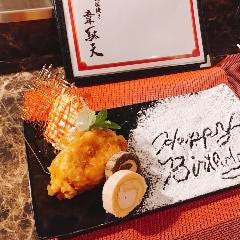 韋駄天
Happy
Birthday